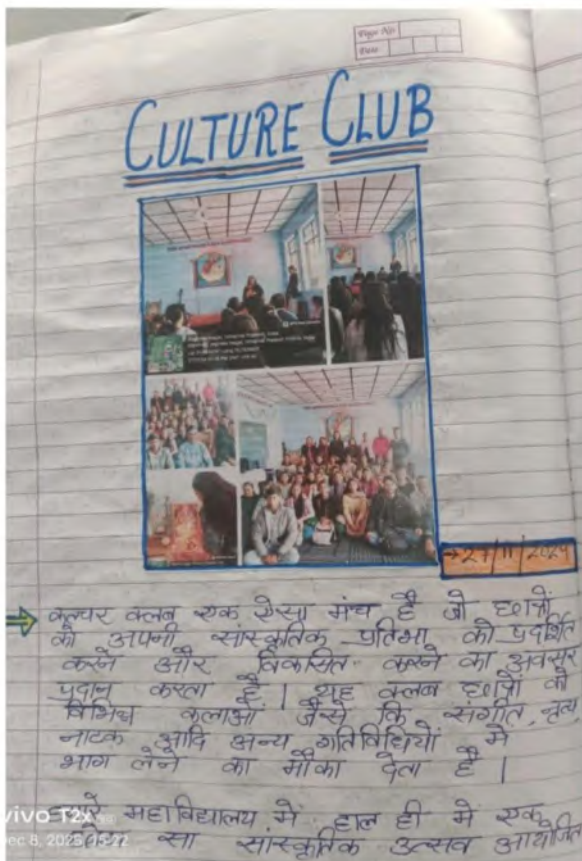 Page No
Date
CULTURE CLUB
→27/11/2024
कल्चर क्लब एक ऐसा मंच है जो छात्रों
को अपनी सांस्कृतिक प्रतिभा को प्रदर्शित
करने और विकसित करने का अवसर
प्रदान करता है | यह क्लब छात्रों को
विभिन्न कलाओं जैसे कि संगीत, नृत्य
नाटक आदि अन्य गतिविधियों में
भाग लेने का मौका देता है |
महाविद्यालय में हाल ही में एक
सा सांस्कृतिक उत्सव आयोजित
vivo T2x
Dec 8, 2025, 15:22